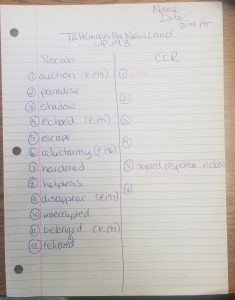 Name
Date
3rd Hr
Talking in the New Land
p. 193
Vocab
CCR
① auction
② paradise
③ shadow
④ echoed
⑤ escape
⑥ reluctantly
⑦ hardened
⑧ helpless
⑨ disappear
⑩ interrupted
⑪ belonged
⑫ relieved
①
②
③
④
⑤ shared response
⑥